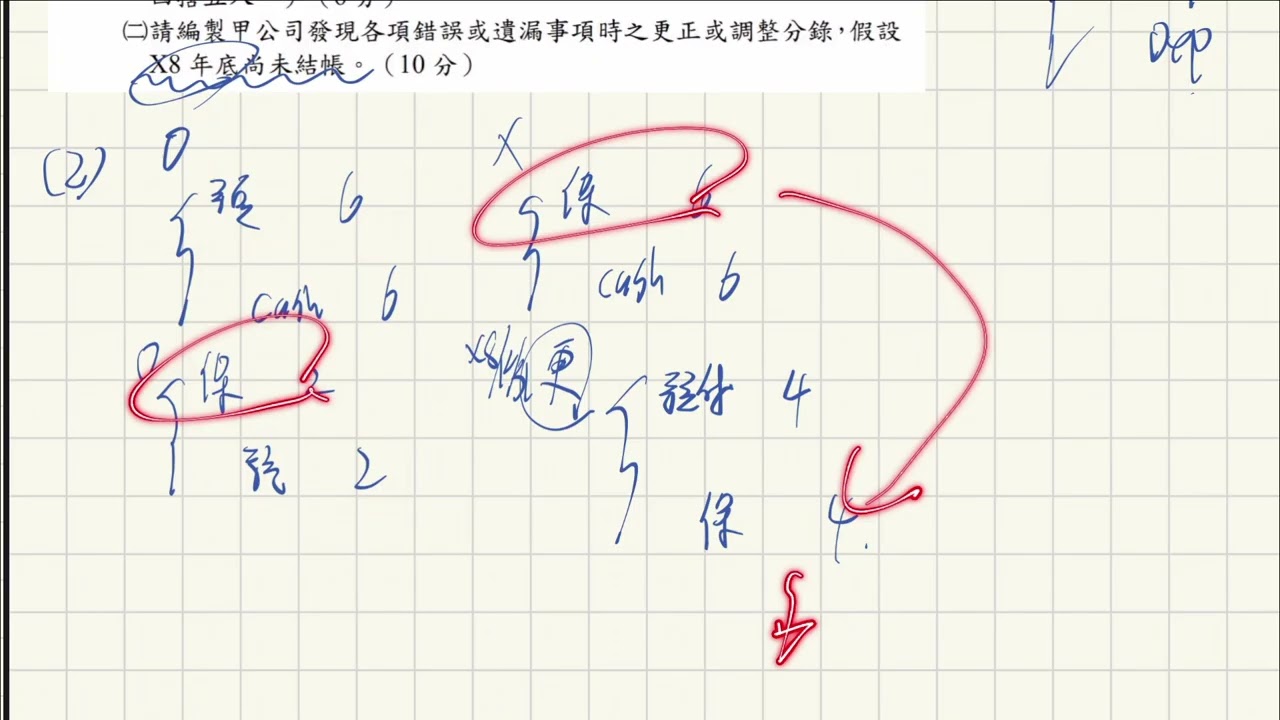 四捨五入
(二)請編製甲公司發現各項錯誤或遺漏事項時之更正或調整分錄,假設
X8 年底尚未結帳。(10 分)
Dep
(2) O X
預 6 保 6
cash 6 cash 6
O 保 2 X8 更 預付 4
預 2 保 4